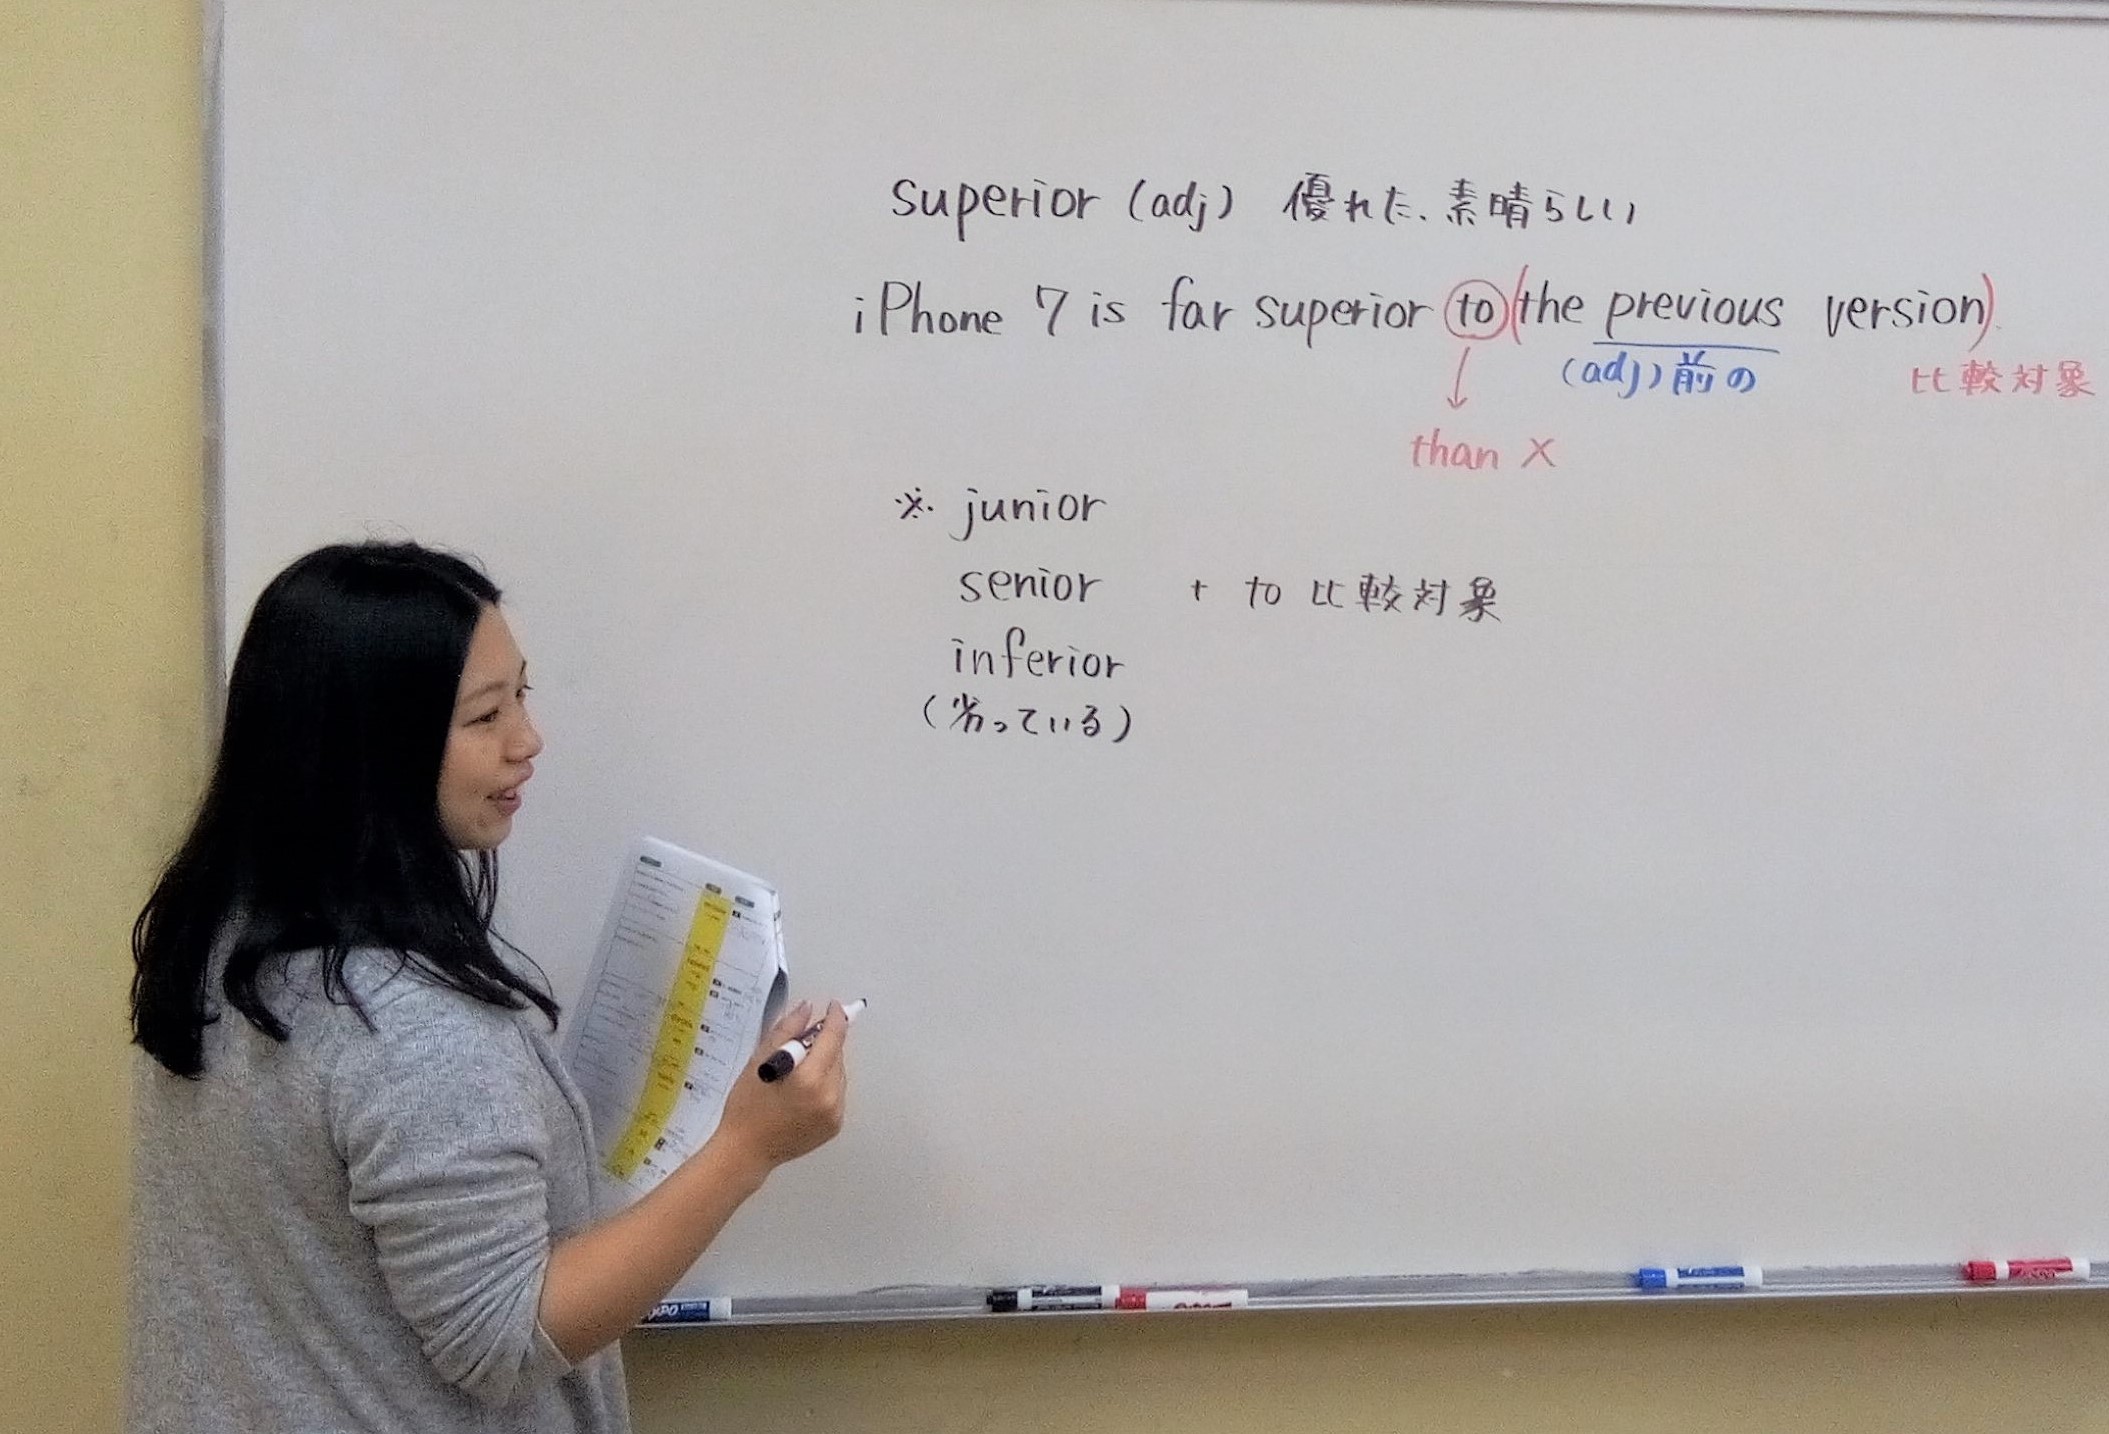 superior (adj) 優れた、素晴らしい
iPhone 7 is far superior to (the previous version).
(adj) 前の 比較対象
than ×
※ junior
senior + to 比較対象
inferior
(劣っている)
EXPO